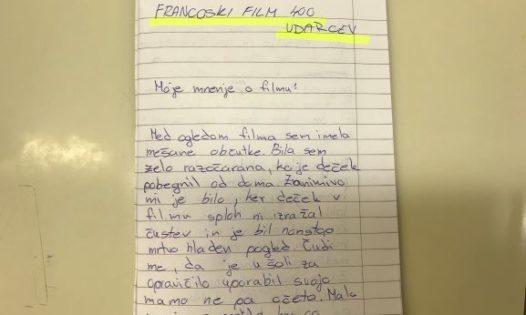 FRANCOSKI FILM 400
UDARCEV
Moje mnenje o filmu:
Med ogledom filma sem imela
mešane občutke. Bila sem
zelo razočarana, ko je deček
pobegnil od doma. Zanimivo
mi je bilo, ker deček v
filmu sploh ni izražal
čustev in je bil nonstop
mrtvo hladen pogled. Čudi
me, da je v šoli za
opravičilo uporabil svojo
mamo ne pa očeta. Malo